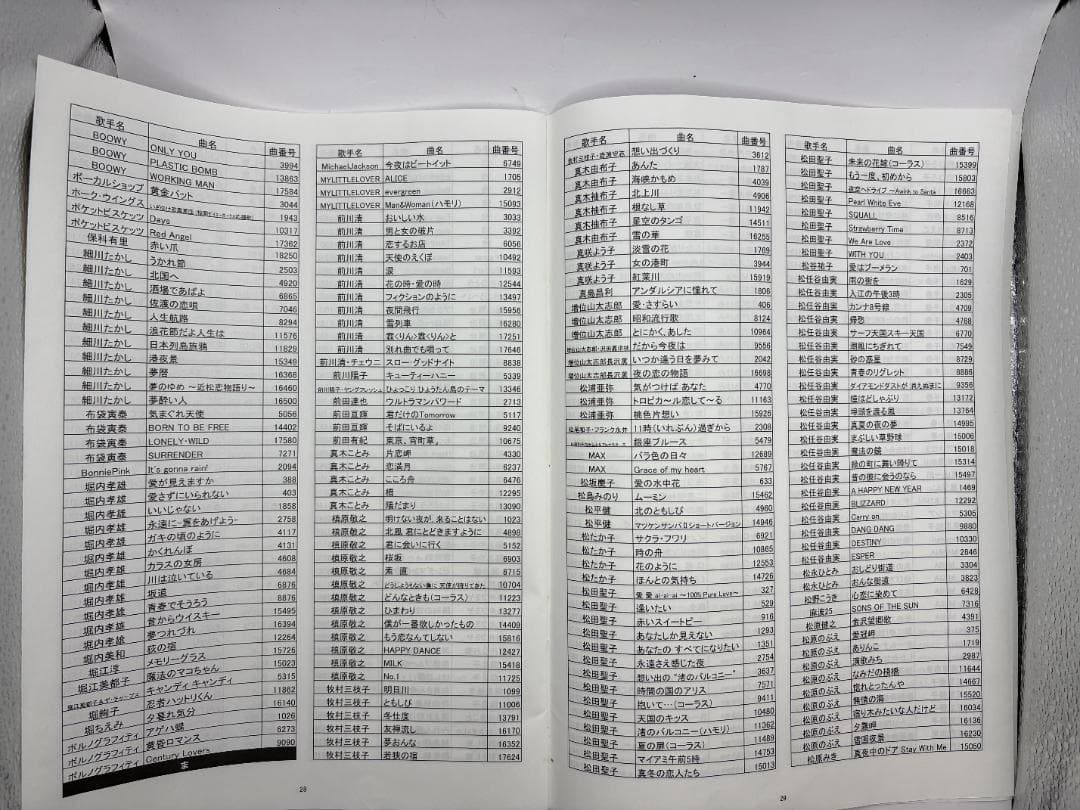 歌手名 曲名 曲番号
BOOWY ONLY YOU 3994
BOOWY PLASTIC BOMB 13863
BOOWY WORKING MAN 17584
ボーカルショップ 黄金バット 3044
ホーク・ウイングス 1943
ポケットビスケッツ Days 10317
ポケットビスケッツ Red Angel 17362
保科有里 赤い爪 18250
細川たかし うかれ節 2503
細川たかし 北国へ 4920
細川たかし 酒場であばよ 6865
細川たかし 佐渡の恋唄 7046
細川たかし 人生航路 8294
細川たかし 浪花節だよ人生は 11576
細川たかし 日本列島旅鴉 11829
細川たかし 港夜景 15349
細川たかし 夢暦 16368
細川たかし 夢のゆめ ～近松恋物語り～ 16460
細川たかし 夢酔い人 16500
布袋寅泰 気まぐれ天使 5056
布袋寅泰 BORN TO BE FREE 14402
布袋寅泰 LONELY-WILD 17580
布袋寅泰 SURRENDER 7271
BonniePink It's gonna rain! 2094
堀内孝雄 愛が見えますか 388
堀内孝雄 愛さずにいられない 403
堀内孝雄 いいじゃない 1858
堀内孝雄 永遠に-翼をあげよう- 2758
堀内孝雄 ガキの頃のように 4117
堀内孝雄 かくれんぼ 4131
堀内孝雄 カラスの女房 4608
堀内孝雄 川は泣いている 4684
堀内孝雄 坂道 6876
堀内孝雄 青春でそうろう 8876
堀内孝雄 昔からウイスキー 15495
堀内孝雄 夢つづれ 16394
堀内美和 萩の宿 12264
堀江淳 メモリーグラス 15726
堀江美都子 魔法のマコちゃん 15023
キャンディ キャンディ 5315
堀絢子 忍者ハットリくん 11862
堀ちえみ 夕暮れ気分 16140
ポルノグラフィティ アゲハ蝶 1026
ポルノグラフィティ 黄昏ロマンス 6273
ポルノグラフィティ Century Lovers 9090
ま
歌手名 曲名 曲番号
MichaelJackson 今夜はビートイット 6749
MYLITTLELOVER ALICE 1705
MYLITTLELOVER evergreen 2912
MYLITTLELOVER Man&Woman(ハモリ) 15093
前川清 おいしい水 3033
前川清 男と女の破片 3392
前川清 恋するお店 6056
前川清 天使のえくぼ 10492
前川清 涙 11593
前川清 花の時・愛の時 12544
前川清 フィクションのように 13497
前川清 夜間飛行 15956
前川清 雪列車 16280
前川清 雲<りん>雲<りん>と 17251
前川清 別れ曲でも唄って 17646
前川清・チェウニ スローグッドナイト 8838
前川陽子 キューティーハニー 5339
前川陽子・ヤングフレッシュ ひょっこりひょうたん島のテーマ 13346
前田達也 ウルトラマンパワード 2713
前田亘輝 君だけのTomorrow 5117
前田亘輝 そばにいるよ 9240
前田有紀 東京、宵町草。 10675
真木ことみ 片恋岬 4330
真木ことみ 恋満月 6237
真木ことみ こころ舟 6476
真木ことみ 橋 12295
真木ことみ 陽だまり 13090
槙原敬之 明けない夜が、来ることはない 1023
槙原敬之 北風 君にとどきますように 4898
槙原敬之 君に会いに行く 5152
槙原敬之 桜坂 6903
槙原敬之 素直 8715
槙原敬之 どうしようもない僕に 天使が降りてきた 10704
槙原敬之 どんなときも(コーラス) 11223
槙原敬之 ひまわり 13277
槙原敬之 僕が一番欲しかったもの 14409
槙原敬之 もう恋なんてしない 15816
槙原敬之 HAPPY DANCE 12427
槙原敬之 MILK 15418
槙原敬之 No.1 11725
牧村三枝子 明日川 1099
牧村三枝子 ともしび 11006
牧村三枝子 冬仕度 13791
牧村三枝子 友禅流し 16170
牧村三枝子 夢おんな 16352
牧村三枝子 若狭の宿 17624
28
歌手名 曲名 曲番号
想い出づくり 3612
真木由布子 あんた 1787
真木柚布子 海峡かもめ 4039
真木柚布子 北上川 4906
真木柚布子 根なし草 11942
真木柚布子 星空のタンゴ 14511
真木由布子 雪の華 16255
真咲よう子 淡雪の花 1709
真咲よう子 女の湊町 3944
真咲よう子 紅葉川 15919
真島昌利 アンダルシアに憧れて 1806
増位山太志郎 愛・さすらい 406
増位山太志郎 昭和流行歌 8124
増位山太志郎 とにかく、あした 10964
だから今夜は 9556
増位山太志郎・長沢薫 いつか違う日を夢みて 2042
増位山太志郎・長沢薫 夜の恋の物語 16698
松浦亜弥 気がつけば あなた 4770
松浦亜弥 トロピカ～ル恋して～る 11163
松浦亜弥 桃色片想い 15926
松尾和子・フランク永井 11時(いれぶん)過ぎから 2308
銀座ブルース 5479
MAX バラ色の日々 12689
MAX Grace of my heart 5767
松坂慶子 愛の水中花 633
松島みのり ムーミン 15462
松平健 北のともしび 4960
松平健 マツケンサンバⅡショートバージョン 14946
松たか子 サクラ・フワリ 6921
松たか子 時の舟 10865
松たか子 花のように 12553
松たか子 ほんとの気持ち 14726
松田聖子 愛 愛 ai-ai-ai ～100% Pure Love～ 327
松田聖子 逢いたい 529
松田聖子 赤いスイートピー 916
松田聖子 あなたしか見えない 1293
松田聖子 あなたの すべてになりたい 1351
松田聖子 永遠さえ感じた夜 2754
松田聖子 想い出の"渚のバルコニー" 3637
松田聖子 時間の国のアリス 7571
松田聖子 抱いて…(コーラス) 9411
松田聖子 天国のキッス 10480
松田聖子 渚のバルコニー(ハモリ) 11362
松田聖子 夏の扉(コーラス) 11489
松田聖子 マイアミ午前5時 14753
松田聖子 真冬の恋人たち 15013
歌手名 曲名 曲番号
松田聖子 未来の花嫁(コーラス) 15399
松田聖子 もう一度、初めから 15803
松田聖子 16663
松田聖子 Pearl White Eve 12168
松田聖子 SQUALL 8516
松田聖子 Strawberry Time 8713
松田聖子 We Are Love 2372
松田聖子 WITH YOU 2403
松谷祐子 愛はブーメラン 701
松任谷由実 雨の街を 1629
松任谷由実 入江の午後3時 2305
松任谷由実 カンナ8号線 4709
松任谷由実 帰愁 4788
松任谷由実 サーフ天国スキー天国 6770
松任谷由実 潮風にちぎれて 7549
松任谷由実 砂の惑星 8729
松任谷由実 青春のリグレット 8886
松任谷由実 ダイアモンドダストが 消えぬまに 9356
松任谷由実 埠頭を渡る風 13764
松任谷由実 真夏の夜の夢 14995
松任谷由実 まぶしい草野球 15006
松任谷由実 魔法の鏡 15018
松任谷由実 15314
松任谷由実 昔の彼に会うのなら 15497
松任谷由実 A HAPPY NEW YEAR 1469
松任谷由実 BLIZZARD 12292
松任谷由実 Carry on 5305
松任谷由実 DANG DANG 9880
松任谷由実 DESTINY 10330
松任谷由実 ESPER 2846
松永ひとみ おしどり街道 3304
松永ひとみ おんな街道 3823
松野こうき 心恋に染めて 6428
麻波25 SONS OF THE SUN 7316
松原健之 金沢望郷歌 4391
松原のぶえ 愛冠岬 375
松原のぶえ ありんこ 1719
松原のぶえ 演歌みち 2987
松原のぶえ なみだの桟橋 11644
松原のぶえ 惚れとったんや 14667
松原のぶえ 15520
松原のぶえ 宿り木みたいな人だけど 16034
松原のぶえ 夕霧岬 16136
松原のぶえ 雪国夜景 16230
松原みき 真夜中のドア Stay With Me 15050
29